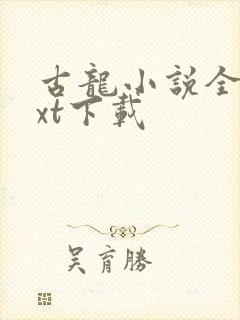 古龍小説全
xt下載
吳育勝